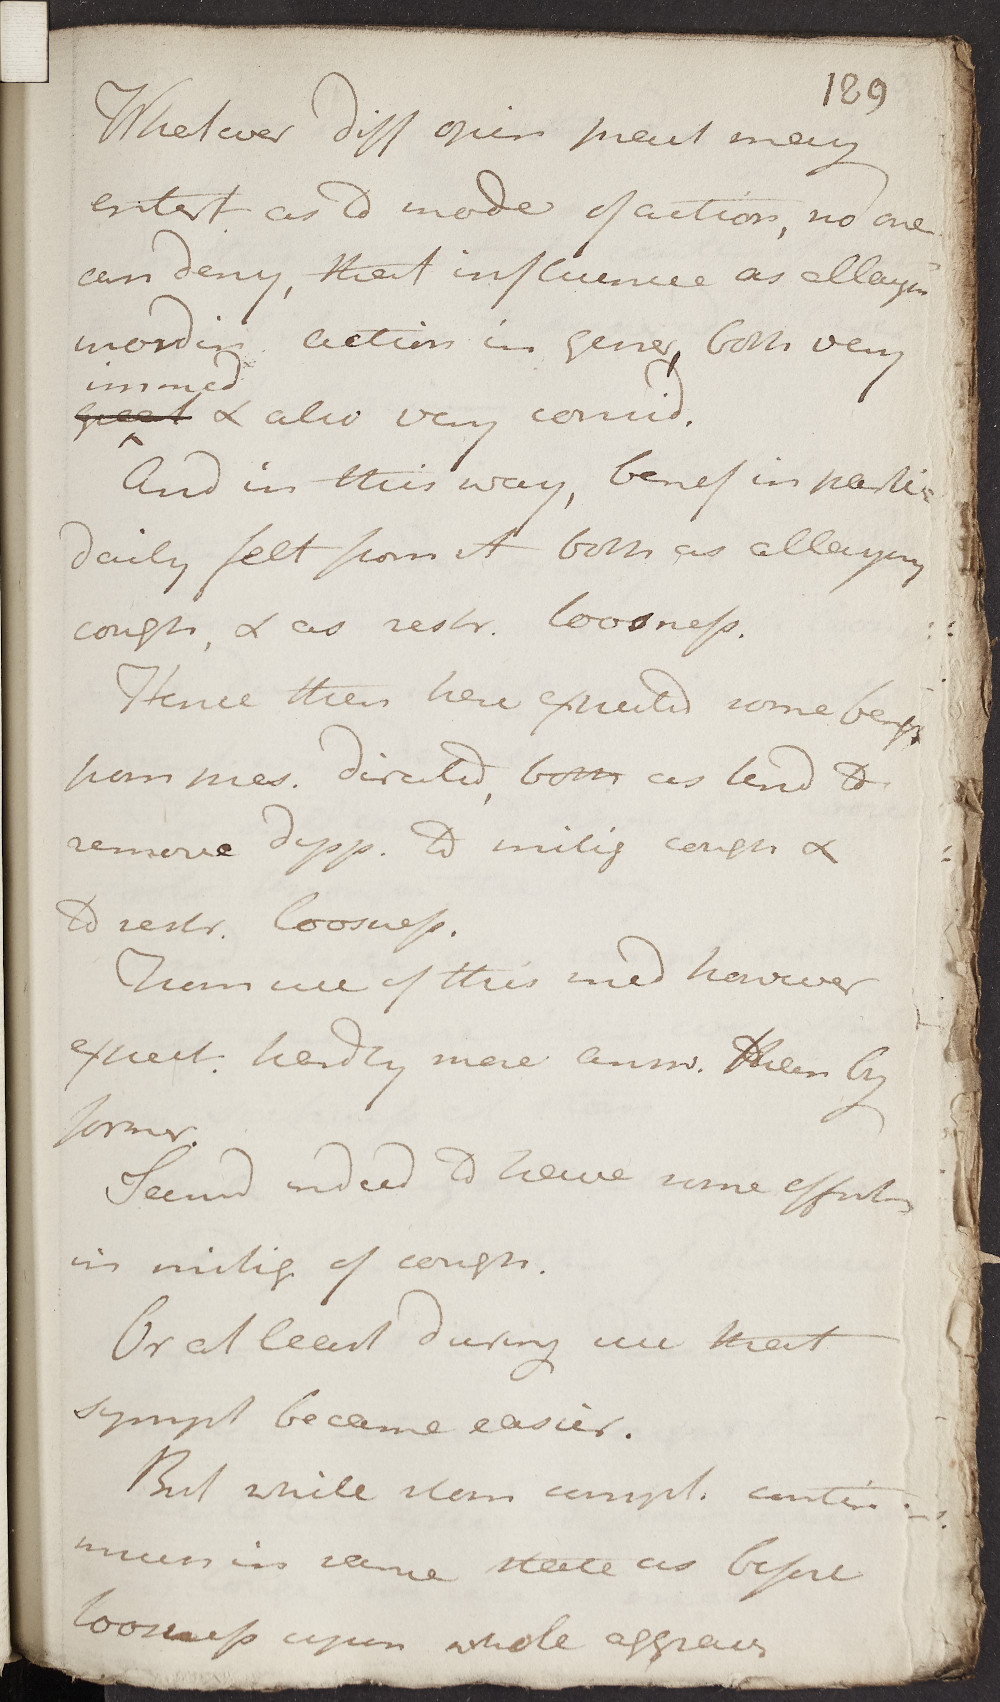 189
Whatever diff opin pract may
entert as to mode of action, no one
can deny, that influence as allayin
mordin action in gener, both very
immed
great & also very consid.
And in this way, benef in partic
daily felt from it both as allaying
cough, & as restr. loosness.
Hence then here expected some benef
from mes. directed, both as tend to
remove dysp. to mitig cough &
to restr. loosness.
From use of this med however
expect. hardly more answ. than by
former.
Seemd indeed to have some effects
in mitig of cough.
Or at least during use that
sympt became easier.
But while stom compt. contin
much in same state as before
loosness upon whole aggrav